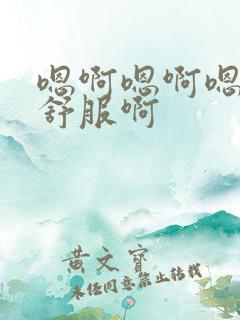 嗯啊嗯啊嗯
舒服啊
黄文宝
未经同意禁止转载